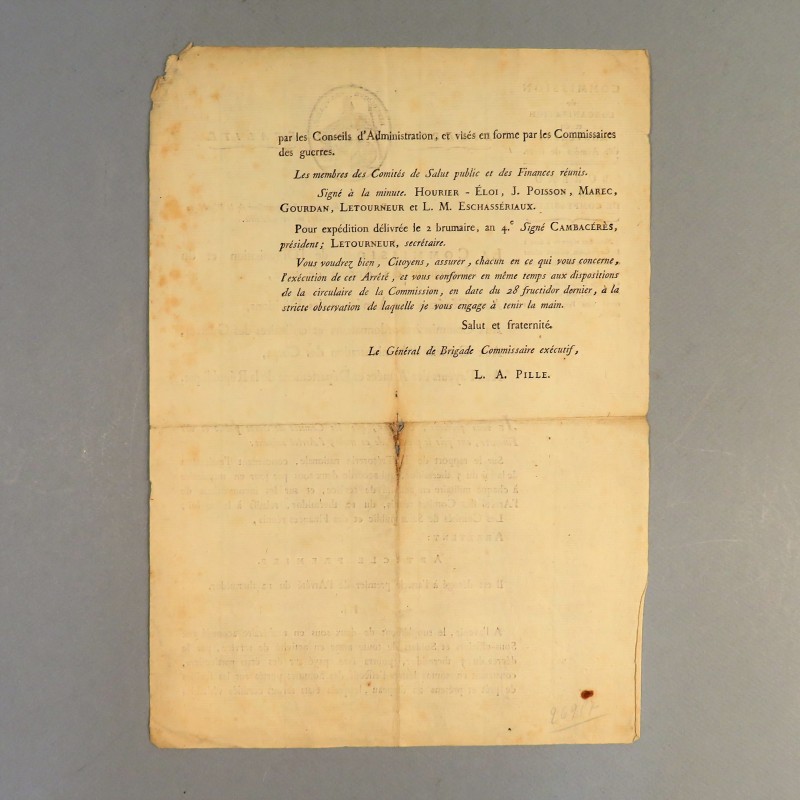 par les Conseils d'Administration, et visés en forme par les Commissaires
des guerres.
Les membres des Comités de Salut public et des Finances réunis.
Signé à la minute. HOURIER-ÉLOI, J. POISSON, MAREC,
GOURDAN, LETOURNEUR et L. M. ESCHASSÉRIAUX.
Pour expédition délivrée le 2 brumaire, an 4.e Signé CAMBACÉRÈS,
président; LETOURNEUR, secrétaire.
Vous voudrez bien, Citoyens, assurer, chacun en ce qui vous concerne,
l'exécution de cet Arrêté, et vous conformer en même temps aux dispositions
de la circulaire de la Commission, en date du 28 fructidor dernier, à la
stricte observation de laquelle je vous engage à tenir la main.
Salut et fraternité.
Le Général de Brigade Commissaire exécutif,
L. A. PILLE.